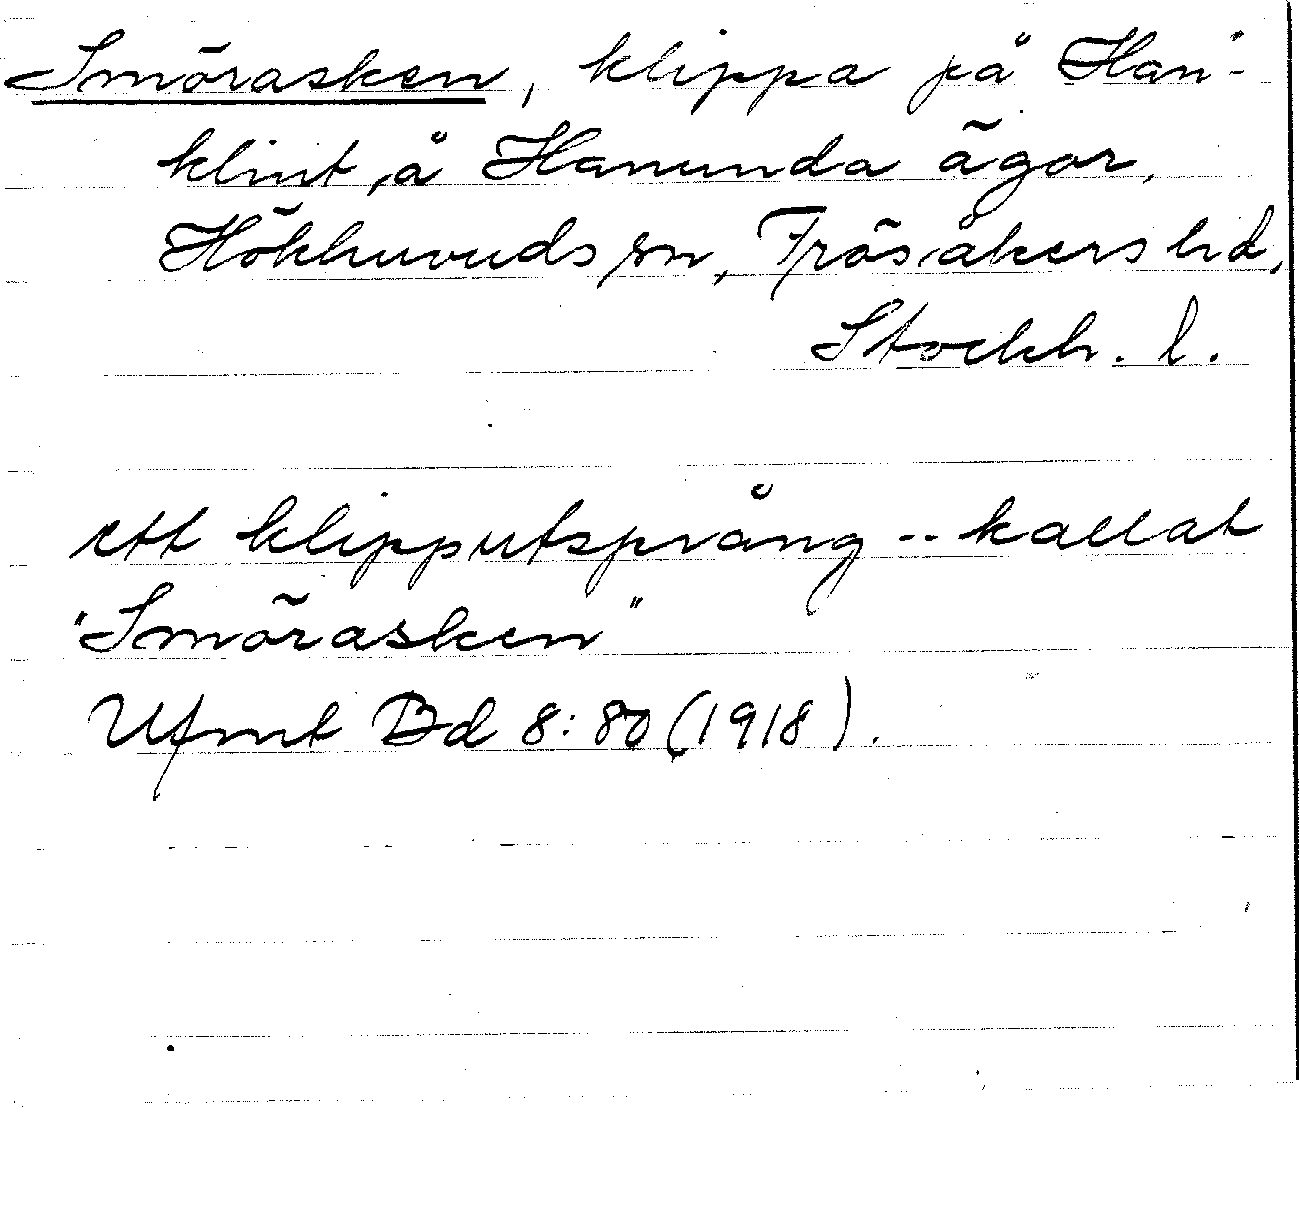 Smörasken, klippa på Han-
klint, å Hanunda ägor,
Hökhuvuds sn, Frösåkers hd,
Stockh. l.
ett klipputsprång -- kallat
"Smörasken"
Ufmt Bd 8: 80 (1918).